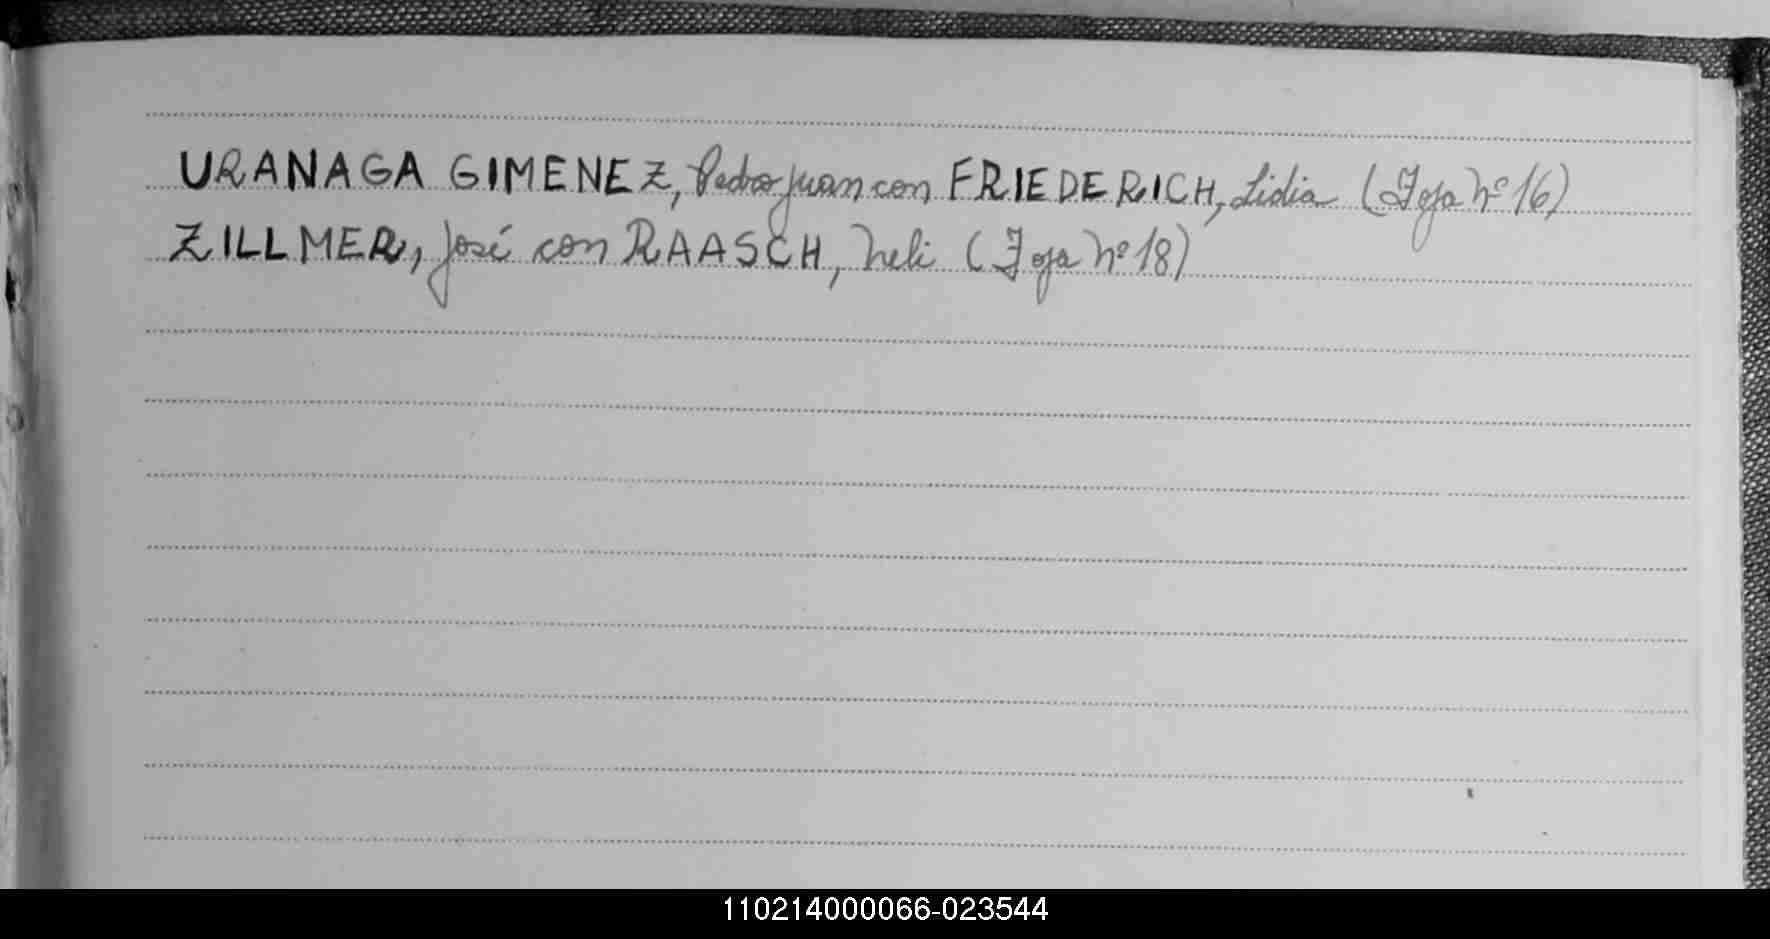 URANAGA GIMENEZ, Pedro Juan con FRIEDERICH, Lidia (Foja Nº 16)
ZILLMER, José con RAASCH, Neli (Foja Nº 18)
110214000066-023544